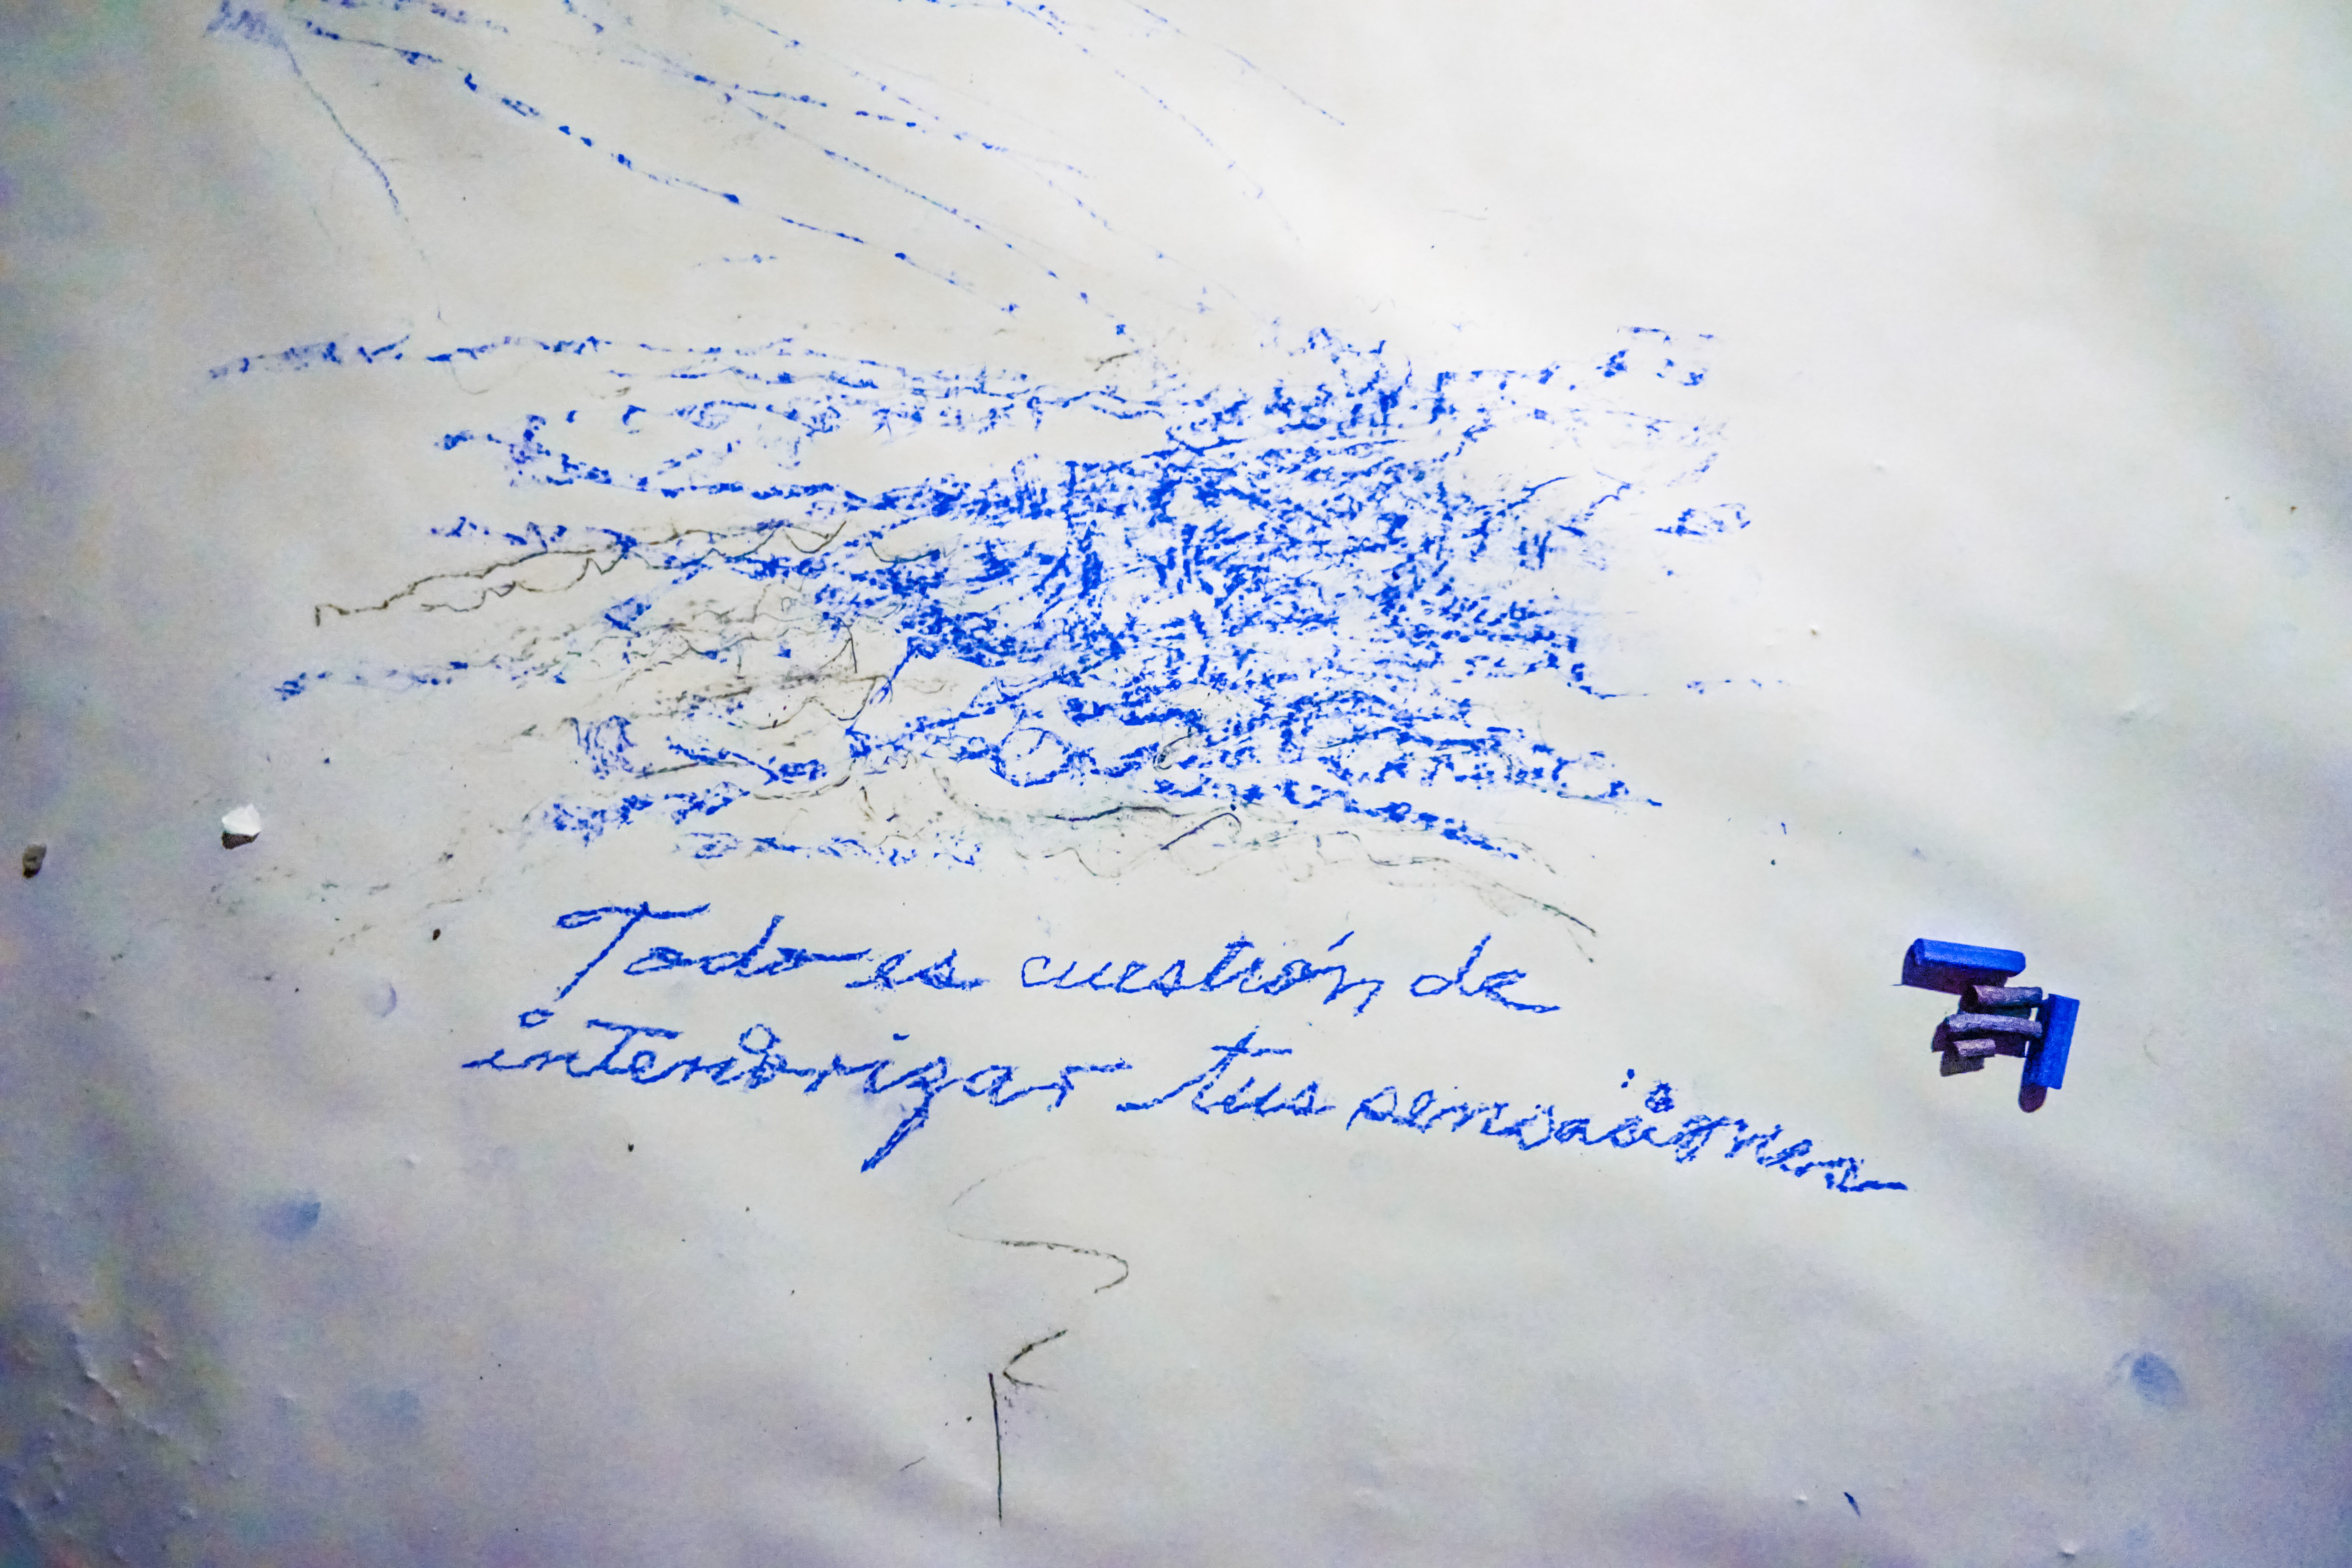 Todo es cuestión de
interiorizar tus sensaciones